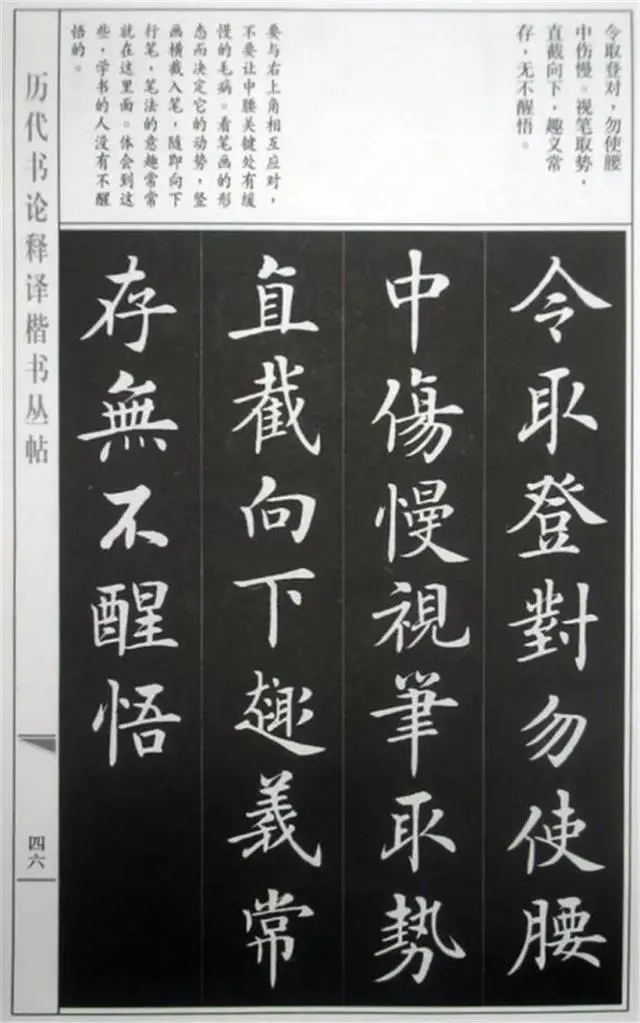 令取登对，勿使腰
中伤慢。视笔取势，
直截向下，趣义常
存，无不醒悟。
要与右上角相互应对，
不要让中腰关键处有缓
慢的毛病。看笔画的形
态而决定它的动势，竖
画横截入笔，随即向下
行笔，笔法的意趣常常
就在这里面。体会到这
些，学书的人没有不醒
悟的。
令取登對勿使腰
中傷慢視筆取勢
直截向下趣義常
存無不醒悟
历代书论释译楷书丛帖
四六